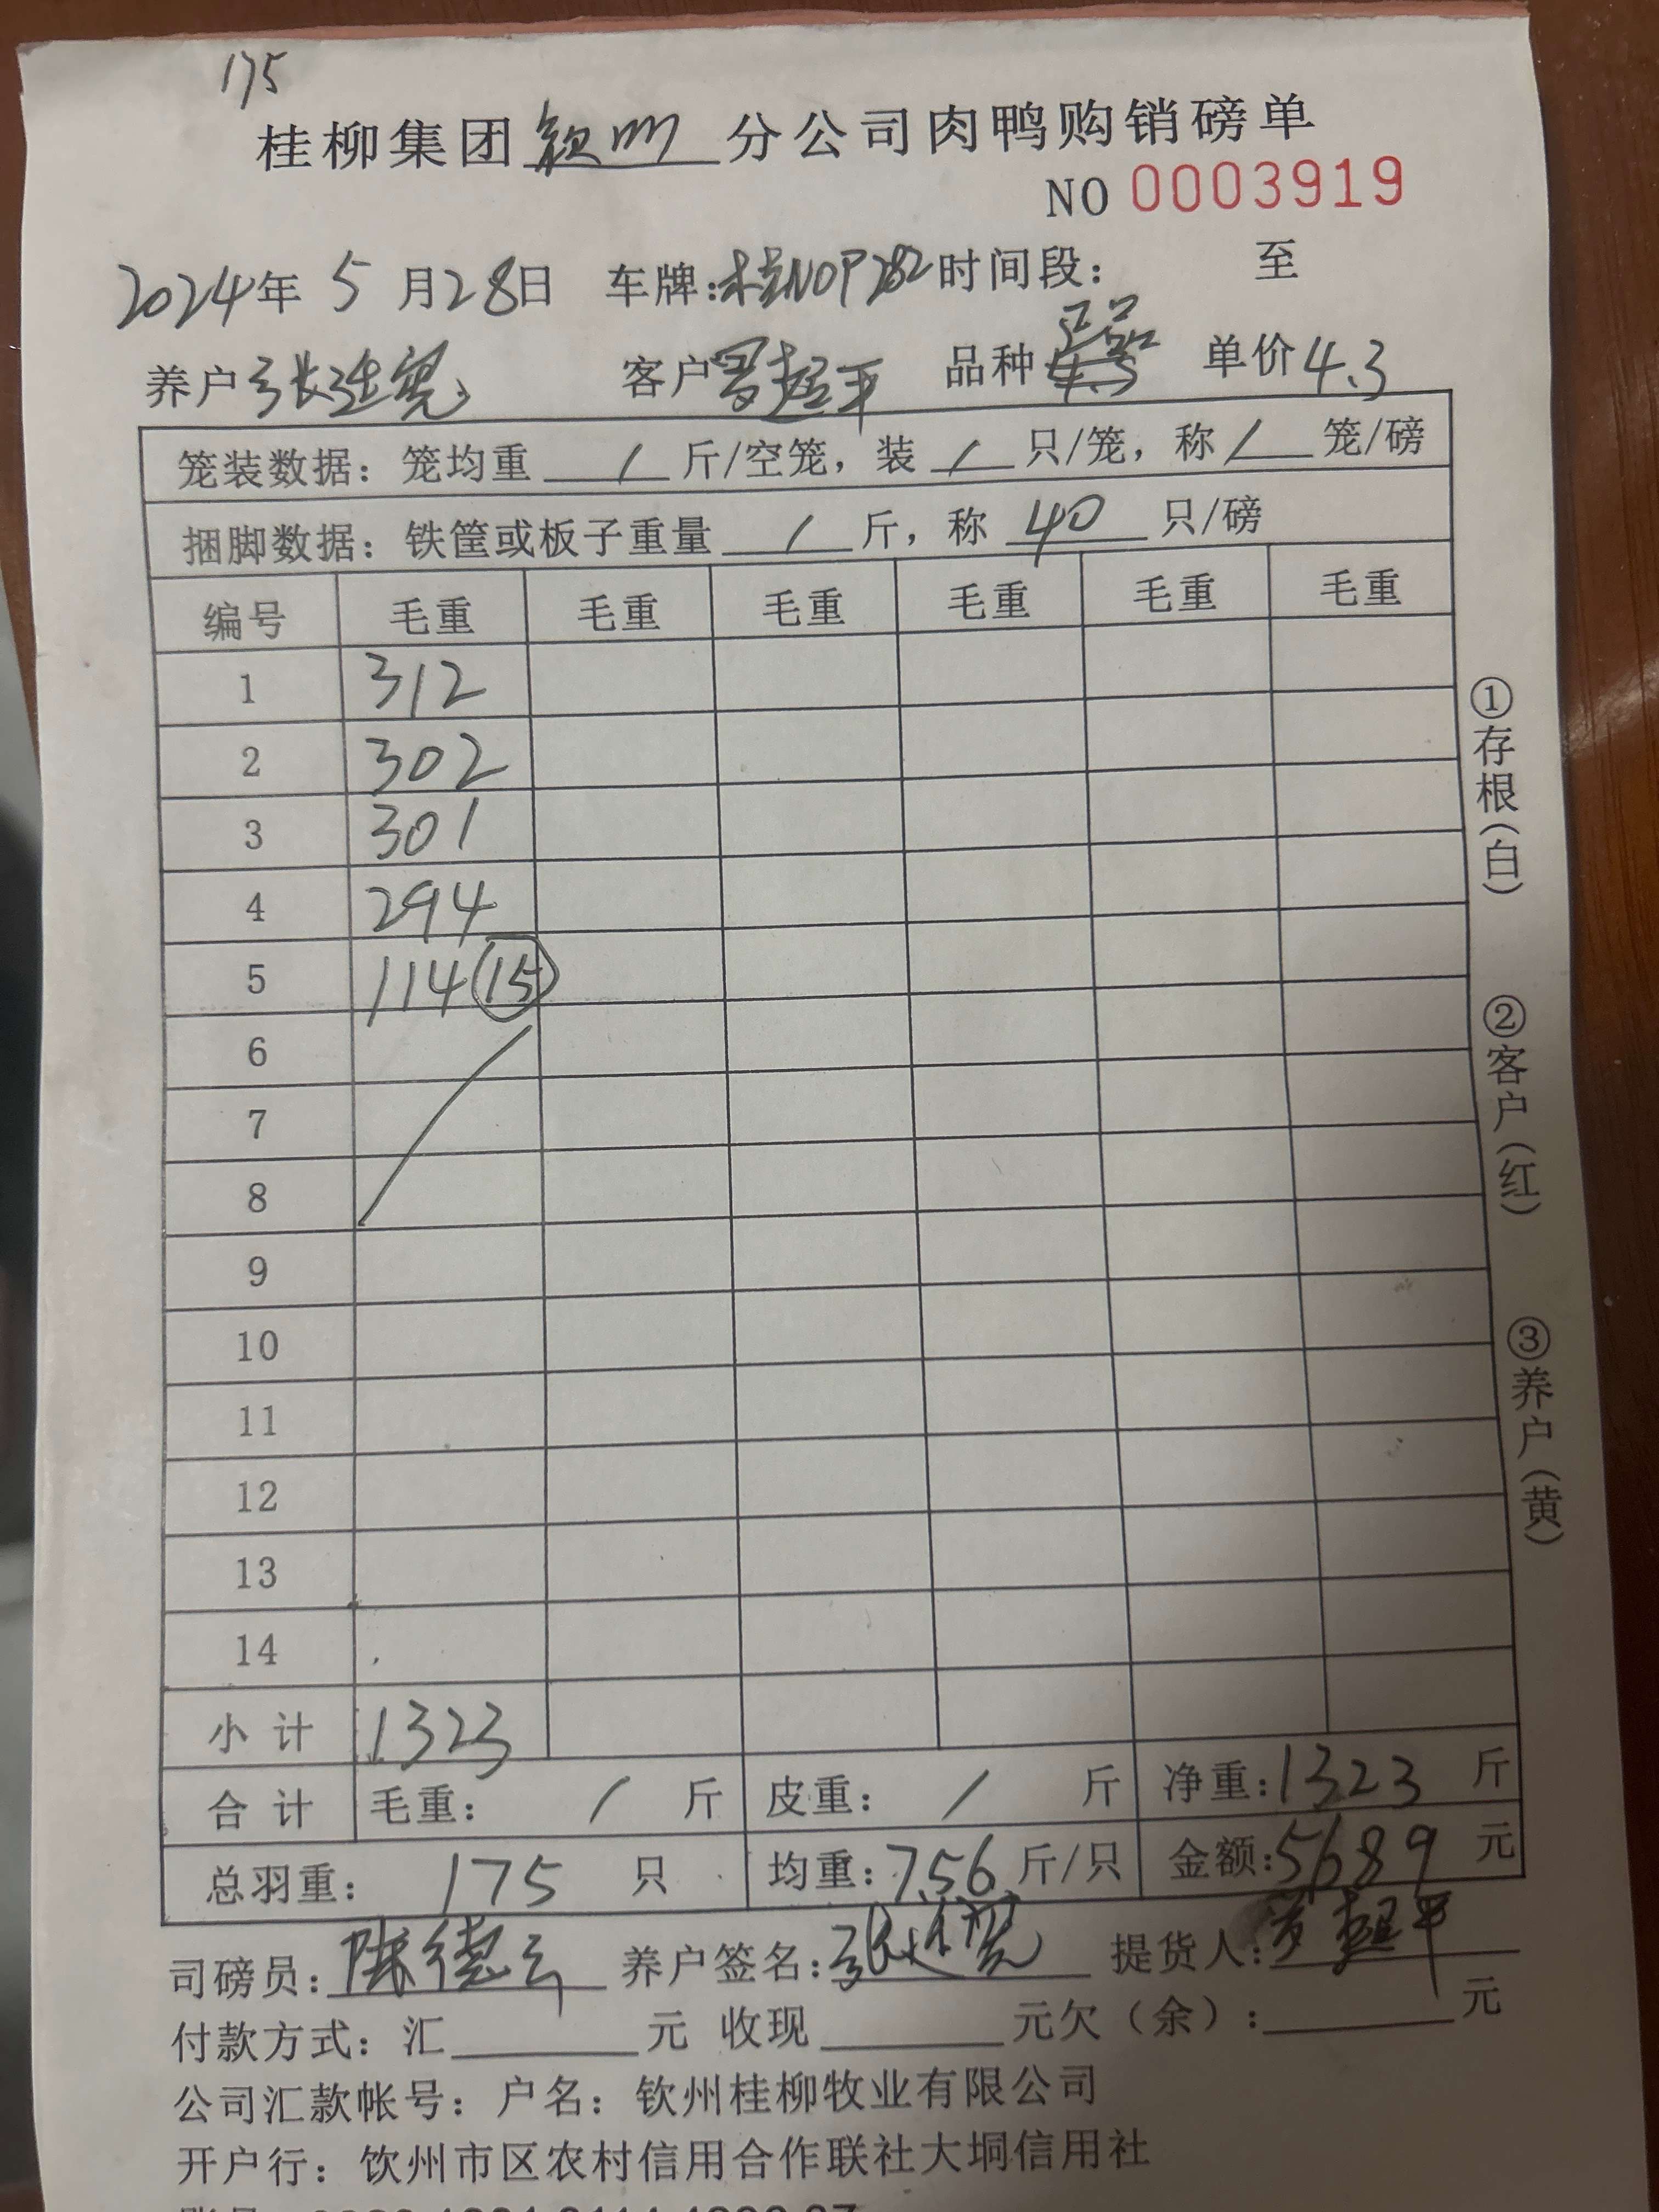 175
桂柳集团钦州分公司肉鸭购销磅单
NO 0003919
2024年 5 月28日 车牌:桂N0P282时间段: 至
养户张连宽 客户罗超平 品种 正品 单价4.3
笼装数据: 笼均重 / 斤/空笼, 装 / 只/笼, 称 / 笼/磅
捆脚数据: 铁筐或板子重量 / 斤, 称 40 只/磅
编号 毛重 毛重 毛重 毛重 毛重 毛重
1 312
2 302
3 301
4 294
5 114 (15)
6
7
8
9
10
11
12
13
14
小 计 1323
合 计 毛重: / 斤 皮重: / 斤 净重:1323 斤
总羽重: 175 只 均重:7.56斤/只 金额:5689 元
司磅员:陈德云 养户签名:张连宽 提货人:罗超平
付款方式: 汇 元 收现 元欠(余): 元
公司汇款帐号: 户名: 钦州桂柳牧业有限公司
开户行: 钦州市区农村信用合作联社大垌信用社
①存根(白)
②客户(红)
③养户(黄)